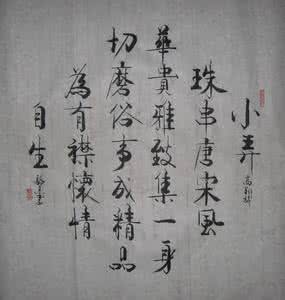 小弄
珠串唐宋風
華貴雅致集一身
切磨俗事成精品
為有襟懷情
自生